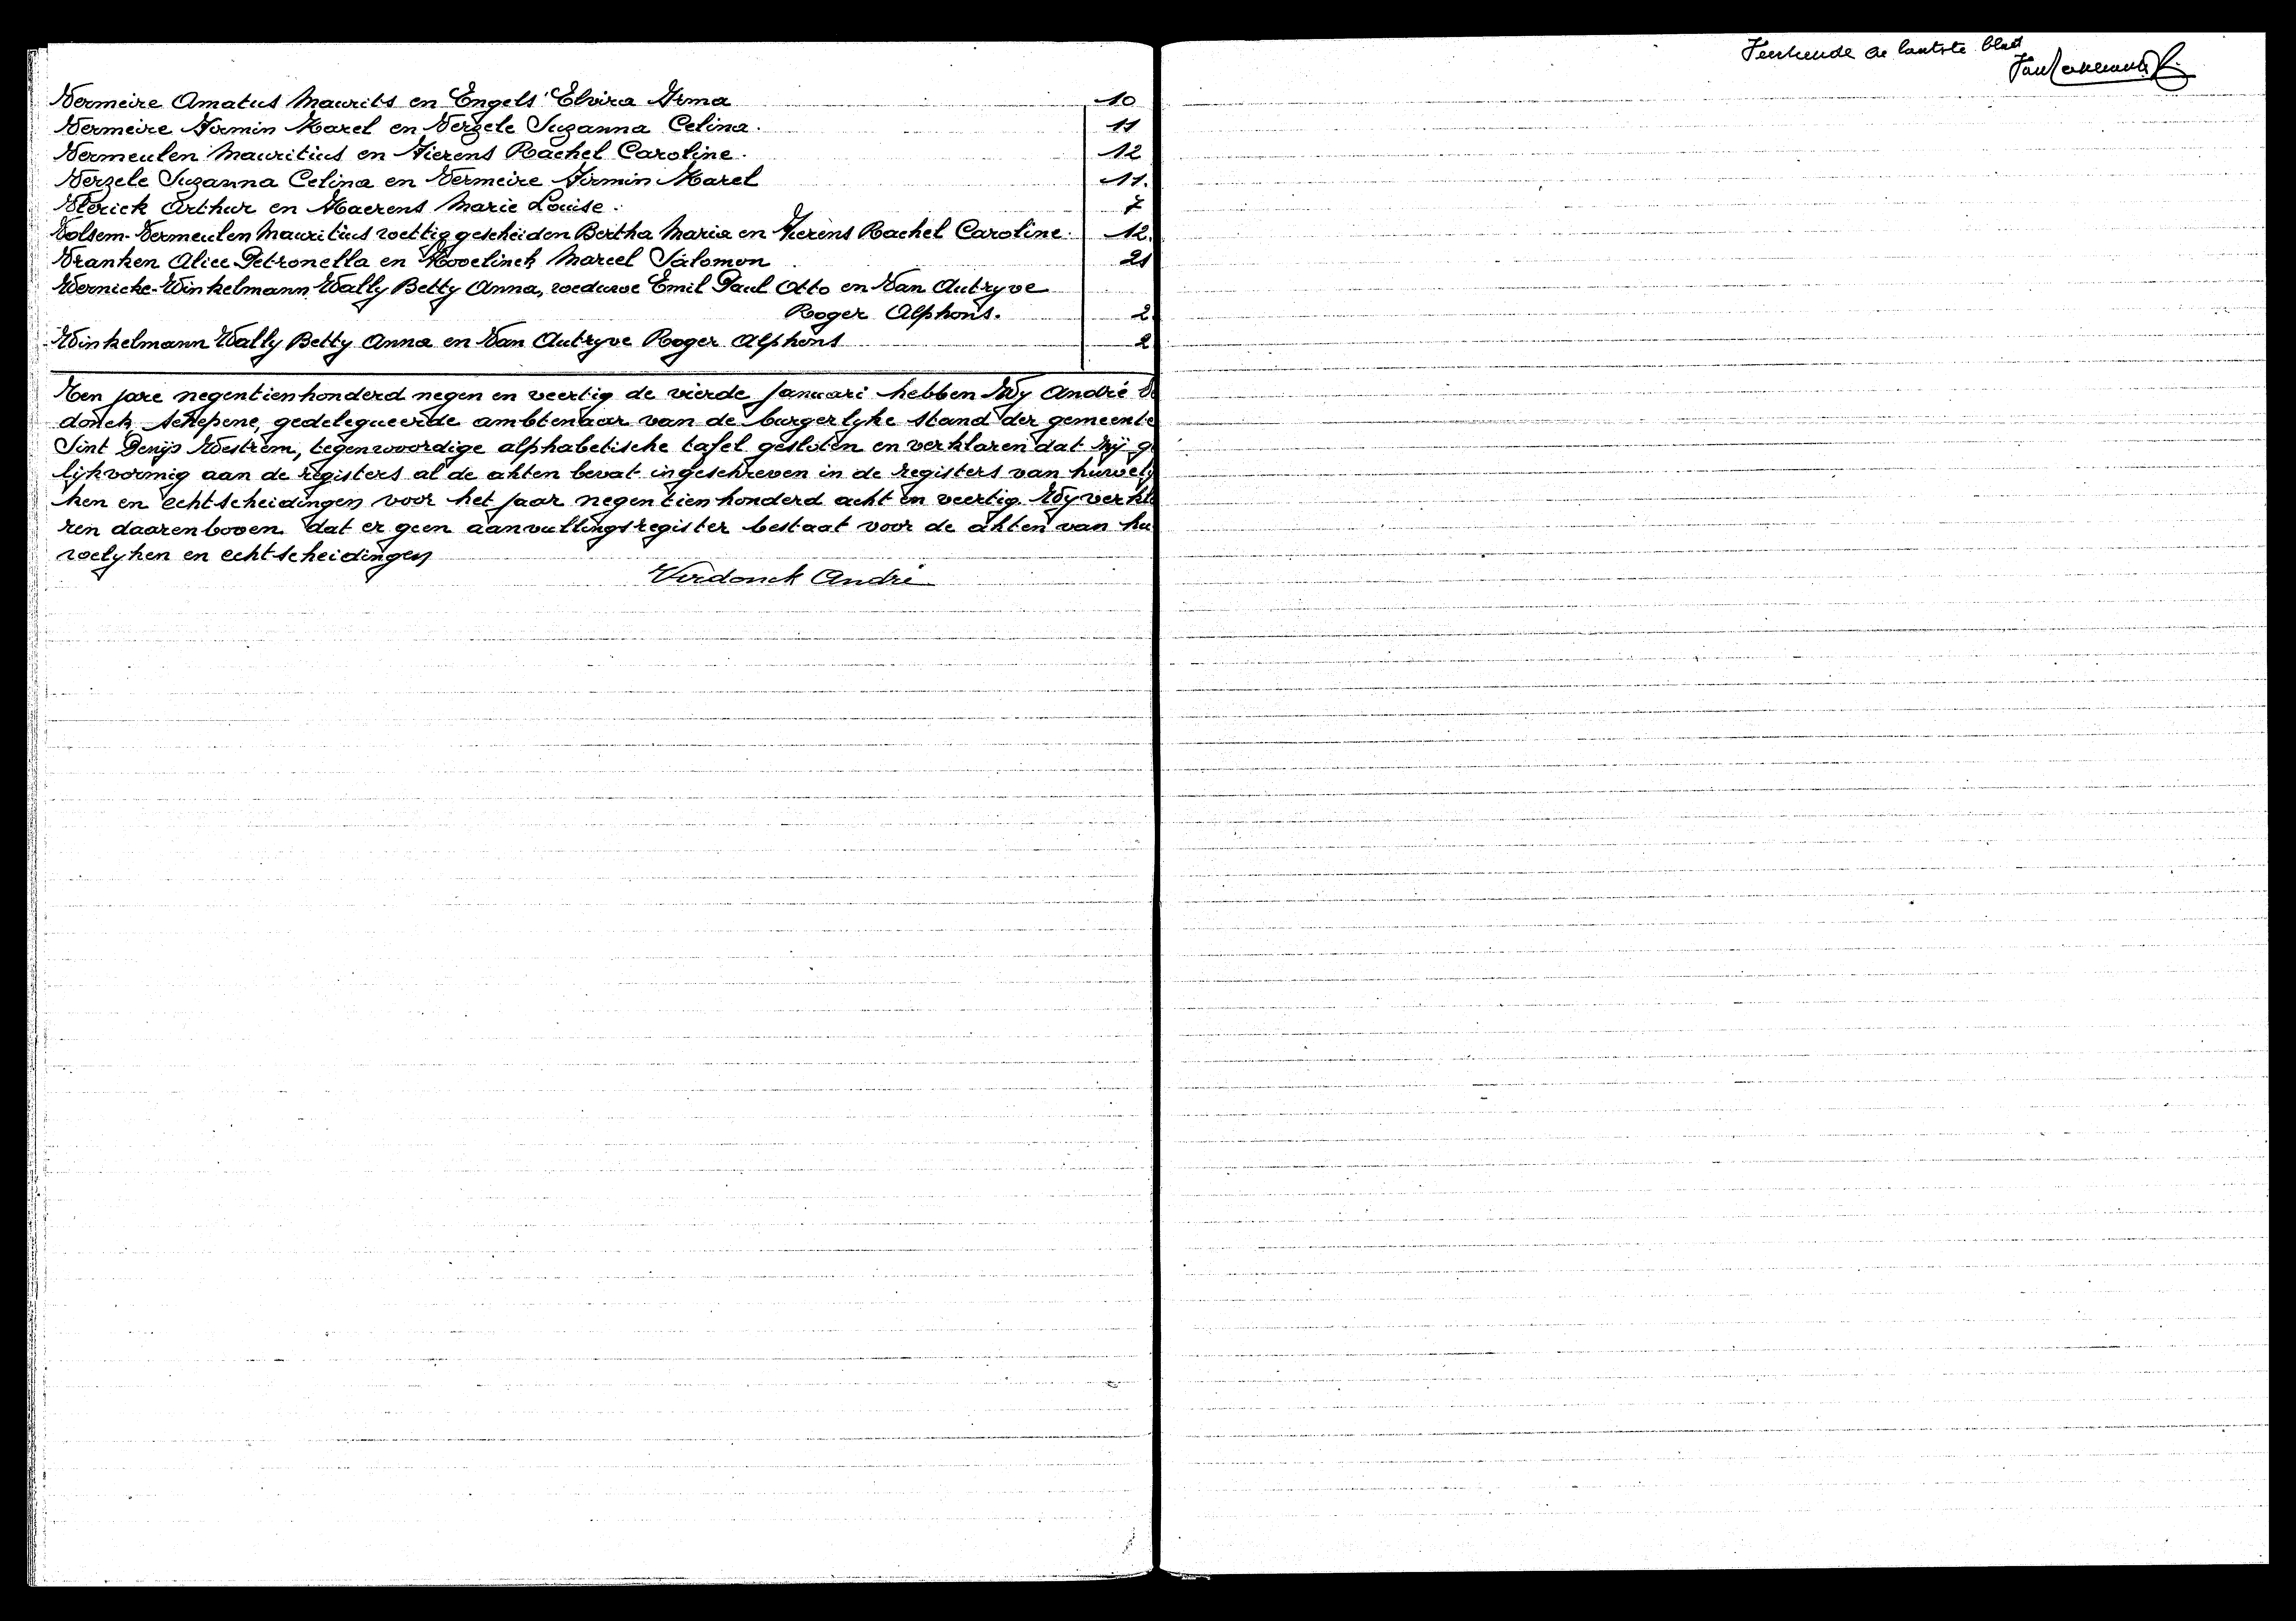 Vermeire Amatus Maurits en Engels Elvira Irma 10
Vermeire Firmin Karel en Verzele Suzanna Celina. 11
Vermeulen Mauritius en Fierens Rachel Caroline. 12
Verzele Suzanna Celina en Vermeire Firmin Karel 11.
Vlerick Arthur en Haerens Marie Louise. 7
Volsem-Vermeulen Mauritius wettig gescheiden Bertha Maria en Fierens Rachel Caroline. 12.
Vranken Alice Petronella en Hovelinck Marcel Salomon 21
Wernicke-Winkelmann Wally Betty Anna, weduwe Emil Paul Otto en Van Autryve
Roger Alphons. 2.
Winkelmann Wally Betty Anna en Van Autryve Roger Alphons 2
Ten jare negentienhonderd negen en veertig de vierde Januari hebben Wy André
donck, schepene, gedelegueerde ambtenaar van de burgerlyke stand der gemeente
Sint Denijs Westrem, tegenwoordige alphabetische tafel gesloten en verklaren dat zij g
lijkvormig aan de registers al de akten bevat ingeschreven in de registers van huwely
ken en echtscheidingen voor het jaar negentienhonderd acht en veertig. Wy verkla
ren daarenboven dat er geen aanvullingsregister bestaat voor de akten van hu
welyken en echtscheidingen
Verdonck André
de laatste blad